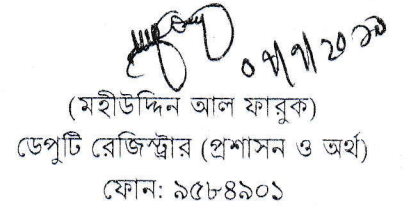 (মহীউদ্দিন আল ফারুক)
ডেপুটি রেজিস্ট্রার (প্রশাসন ও অর্থ)
ফোন: ৯৫৮৪৯০১